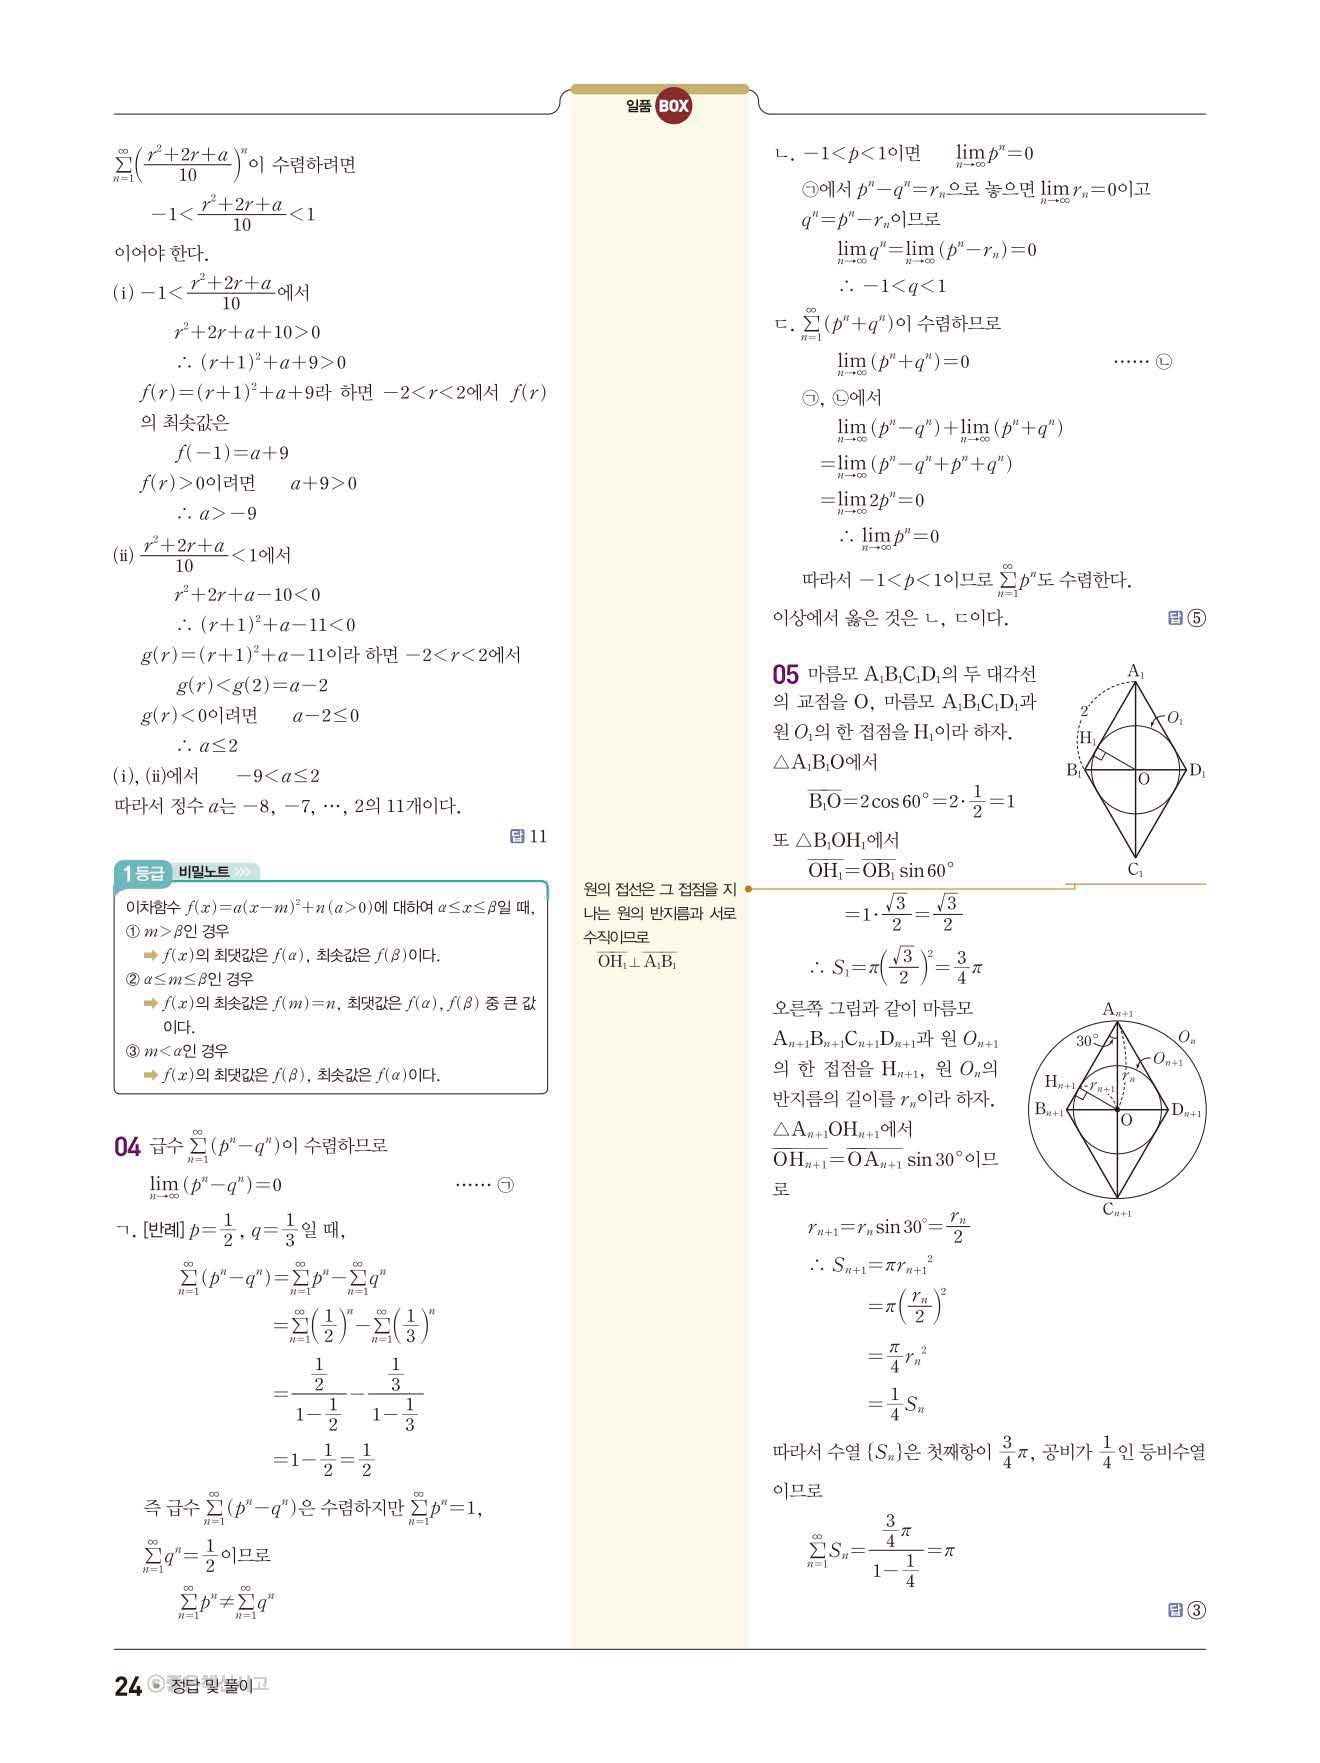 일품 BOX
∞∑n=1((r²+2r+a)/10)ⁿ이 수렴하려면
-1<(r²+2r+a)/10<1
이어야 한다.
(ⅰ) -1<(r²+2r+a)/10에서
r²+2r+a+10>0
∴ (r+1)²+a+9>0
f(r)=(r+1)²+a+9라 하면 -2<r<2에서 f(r)
의 최솟값은
f(-1)=a+9
f(r)>0이려면 a+9>0
∴ a>-9
(ⅱ) (r²+2r+a)/10<1에서
r²+2r+a-10<0
∴ (r+1)²+a-11<0
g(r)=(r+1)²+a-11이라 하면 -2<r<2에서
g(r)<g(2)=a-2
g(r)<0이려면 a-2≤0
∴ a≤2
(ⅰ), (ⅱ)에서 -9<a≤2
따라서 정수 a는 -8, -7, …, 2의 11개이다.
답 11
1등급 비밀노트
이차함수 f(x)=a(x-m)²+n(a>0)에 대하여 α≤x≤β일 때,
① m>β인 경우
➡ f(x)의 최댓값은 f(α), 최솟값은 f(β)이다.
② α≤m≤β인 경우
➡ f(x)의 최솟값은 f(m)=n, 최댓값은 f(α), f(β) 중 큰 값
이다.
③ m<α인 경우
➡ f(x)의 최댓값은 f(β), 최솟값은 f(α)이다.
04 급수 ∞∑n=1(pⁿ-qⁿ)이 수렴하므로
lim n→∞ (pⁿ-qⁿ)=0 …… ㉠
ㄱ. [반례] p=1/2, q=1/3일 때,
∞∑n=1(pⁿ-qⁿ)=∞∑n=1 pⁿ-∞∑n=1 qⁿ
=∞∑n=1(1/2)ⁿ-∞∑n=1(1/3)ⁿ
=(1/2)/(1-1/2)-(1/3)/(1-1/3)
=1-1/2=1/2
즉 급수 ∞∑n=1(pⁿ-qⁿ)은 수렴하지만 ∞∑n=1 pⁿ=1,
∞∑n=1 qⁿ=1/2이므로
∞∑n=1 pⁿ≠∞∑n=1 qⁿ
원의 접선은 그 접점을 지
나는 원의 반지름과 서로
수직이므로
OH₁⊥A₁B₁
ㄴ. -1<p<1이면 lim n→∞ pⁿ=0
㉠에서 pⁿ-qⁿ=rₙ으로 놓으면 lim n→∞ rₙ=0이고
qⁿ=pⁿ-rₙ이므로
lim n→∞ qⁿ=lim n→∞ (pⁿ-rₙ)=0
∴ -1<q<1
ㄷ. ∞∑n=1(pⁿ+qⁿ)이 수렴하므로
lim n→∞ (pⁿ+qⁿ)=0 …… ㉡
㉠, ㉡에서
lim n→∞ (pⁿ-qⁿ)+lim n→∞ (pⁿ+qⁿ)
=lim n→∞ (pⁿ-qⁿ+pⁿ+qⁿ)
=lim n→∞ 2pⁿ=0
∴ lim n→∞ pⁿ=0
따라서 -1<p<1이므로 ∞∑n=1 pⁿ도 수렴한다.
이상에서 옳은 것은 ㄴ, ㄷ이다. 답 ⑤
05 마름모 A₁B₁C₁D₁의 두 대각선
의 교점을 O, 마름모 A₁B₁C₁D₁과
원 O₁의 한 접점을 H₁이라 하자.
△A₁B₁O에서
B₁O=2cos60°=2·1/2=1
또 △B₁OH₁에서
OH₁=OB₁ sin60°
=1·√3/2=√3/2
∴ S₁=π(√3/2)²=3/4π
A₁
2
O₁
H₁
B₁
O
D₁
C₁
오른쪽 그림과 같이 마름모
Aₙ₊₁Bₙ₊₁Cₙ₊₁Dₙ₊₁과 원 Oₙ₊₁
의 한 접점을 Hₙ₊₁, 원 Oₙ의
반지름의 길이를 rₙ이라 하자.
△Aₙ₊₁OHₙ₊₁에서
OHₙ₊₁=OAₙ₊₁ sin30°이므
로
Aₙ₊₁
30°
Oₙ
Oₙ₊₁
Hₙ₊₁
rₙ₊₁
rₙ
Bₙ₊₁
O
Dₙ₊₁
Cₙ₊₁
rₙ₊₁=rₙsin30°=rₙ/2
∴ Sₙ₊₁=πrₙ₊₁²
=π(rₙ/2)²
=π/4 rₙ²
=1/4 Sₙ
따라서 수열 {Sₙ}은 첫째항이 3/4π, 공비가 1/4인 등비수열
이므로
∞∑n=1 Sₙ=(3/4π)/(1-1/4)=π
답 ③
24 정답 및 풀이